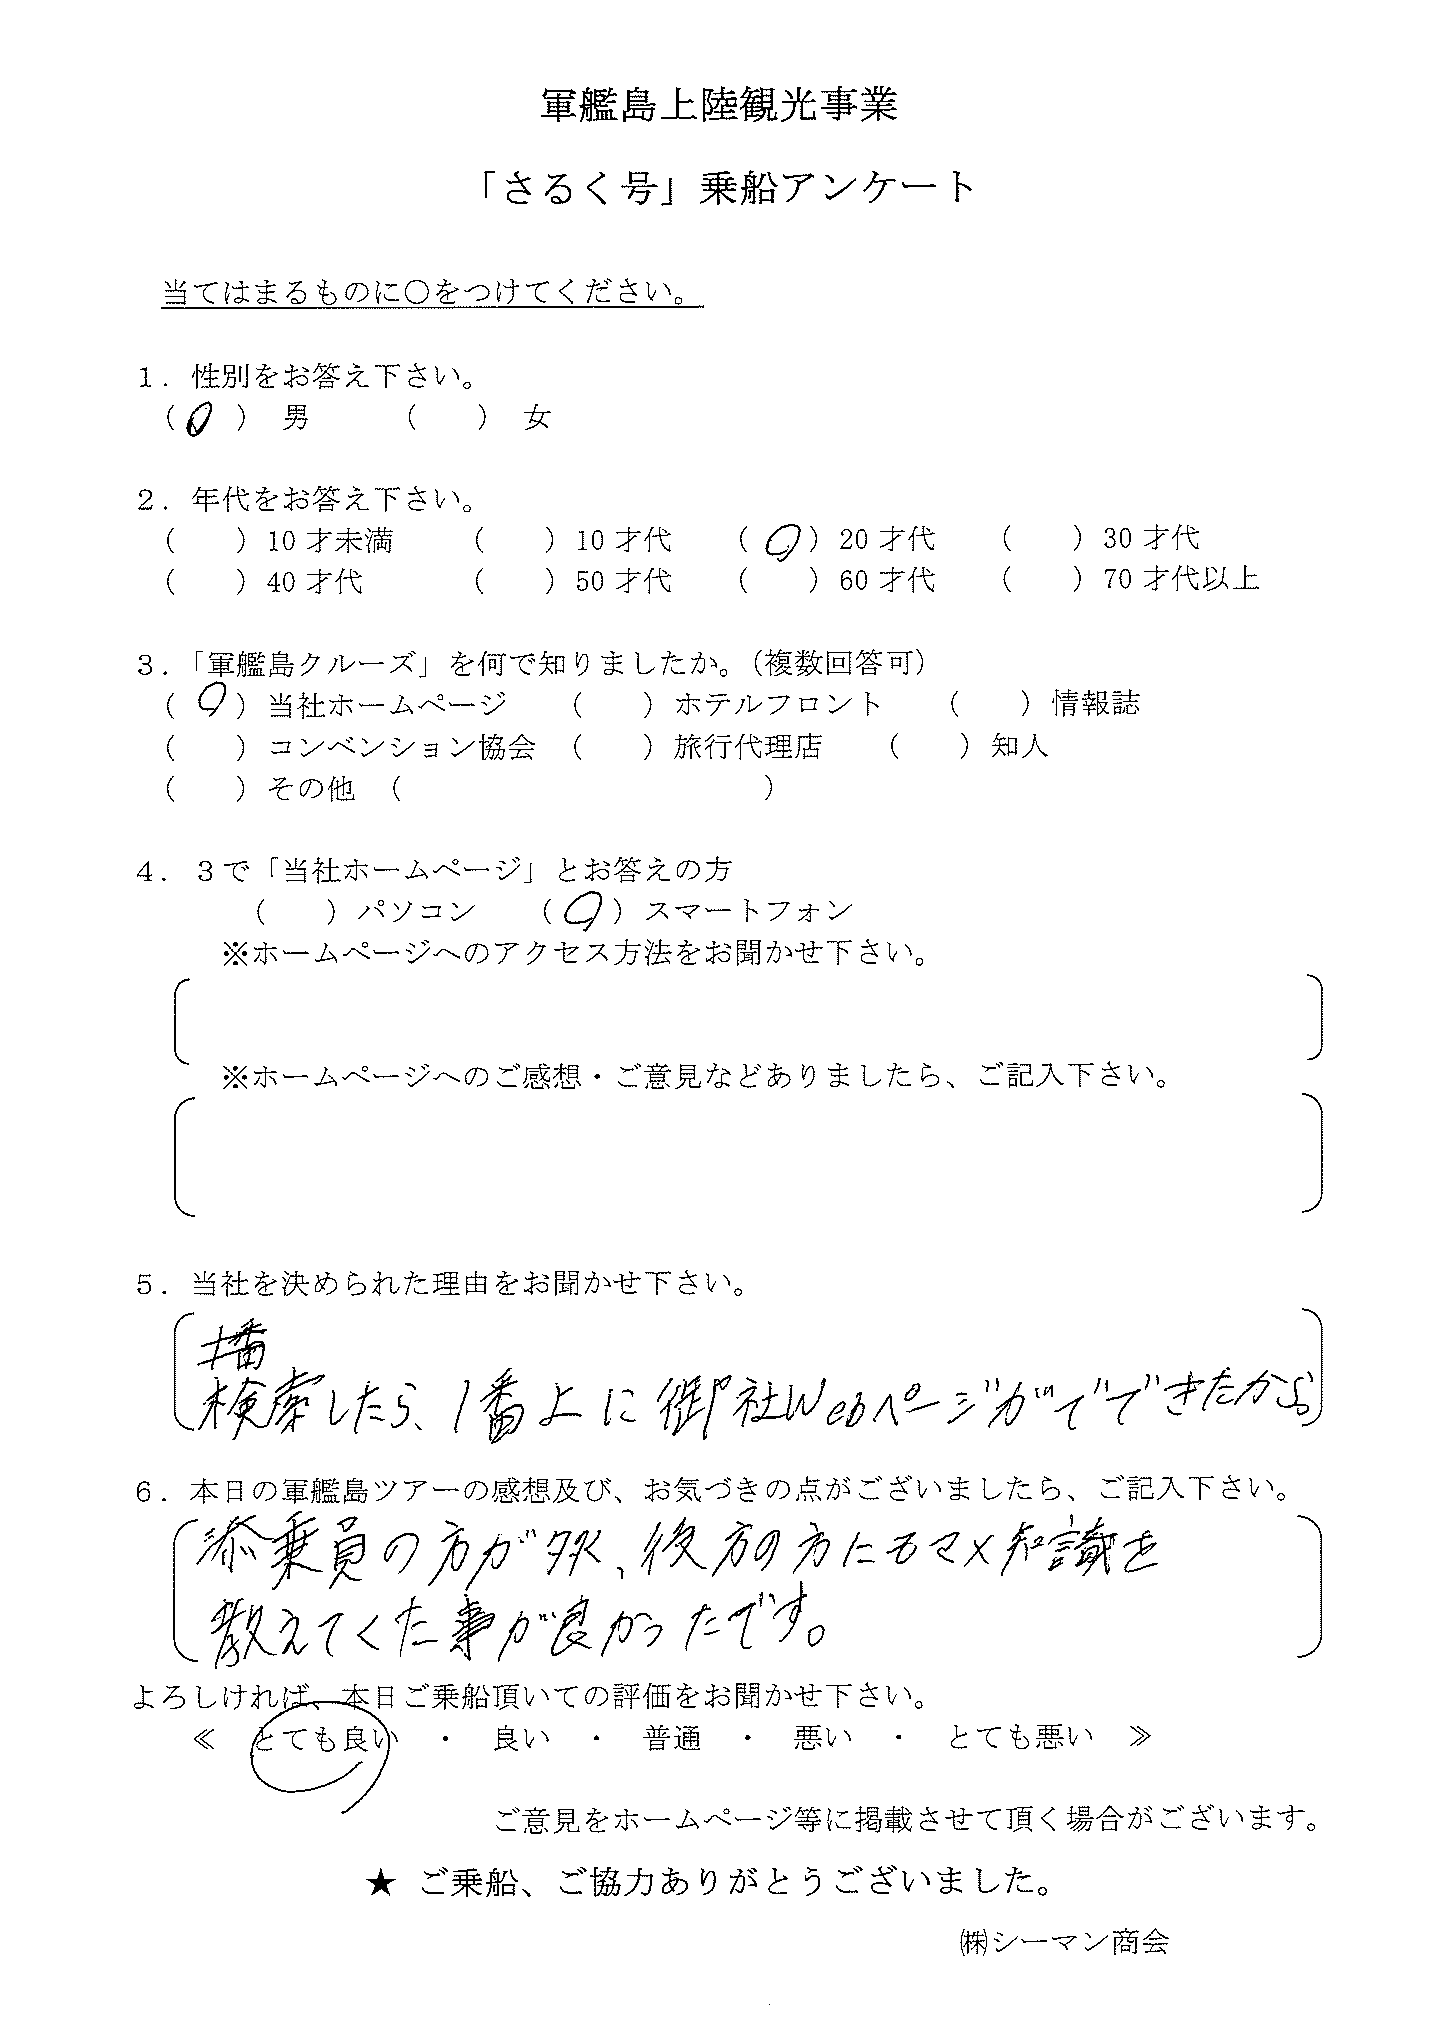 軍艦島上陸観光事業
「さるく号」乗船アンケート
当てはまるものに○をつけてください。
１．性別をお答え下さい。
（○）男　（　）女
２．年代をお答え下さい。
（　）10才未満　（　）10才代　（○）20才代　（　）30才代
（　）40才代　（　）50才代　（　）60才代　（　）70才代以上
３．「軍艦島クルーズ」を何で知りましたか。（複数回答可）
（○）当社ホームページ　（　）ホテルフロント　（　）情報誌
（　）コンベンション協会　（　）旅行代理店　（　）知人
（　）その他　（　）
４．３で「当社ホームページ」とお答えの方
（　）パソコン　（○）スマートフォン
※ホームページへのアクセス方法をお聞かせ下さい。
※ホームページへのご感想・ご意見などありましたら、ご記入下さい。
５．当社を決められた理由をお聞かせ下さい。
検索したら、1番上に御社Webページがでてきたから。
６．本日の軍艦島ツアーの感想及び、お気づきの点がございましたら、ご記入下さい。
添乗員の方が、後方の方にもマメ知識を
教えてくた事が良かったです。
よろしければ、本日ご乗船頂いての評価をお聞かせ下さい。
≪　とても良い　・　良い　・　普通　・　悪い　・　とても悪い　≫
ご意見をホームページ等に掲載させて頂く場合がございます。
★ ご乗船、ご協力ありがとうございました。
㈱シーマン商会